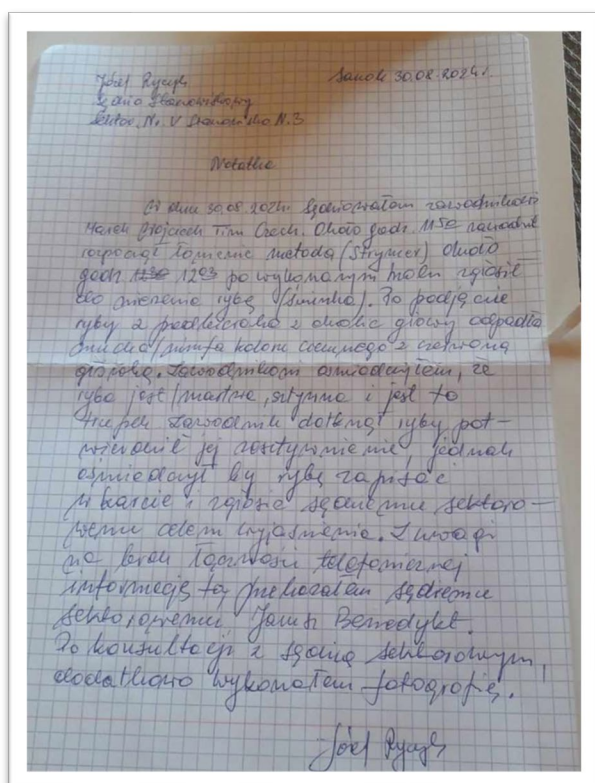 Józef Rycyk Sanok 30.08.2024r.
Sędzia Stanowiskowy
Sektor Nr V Stanowisko N.3
Notatka
W dniu 30.08.2024r. Sędziowałem zawodnikowi
Marek Wojciech Tim Czech. Około godz. 1150 zawodnik
rozpoczął łowienie metodą (Strymer) około
godz. 1203 po wykonanym holu zgłosił
do mierzenia rybę (świnka). Po podjęciu
ryby z podbieraka z okolic głowy odpadła
mucha/nimfa koloru ciemnego z czerwoną
główką. Zawodnikowi oświadczyłem, że
ryba jest/martwa, sztywna i jest to
trup. Zawodnik dotknął ryby pot-
wierdził jej zesztywnienie, jednak
oświadczył by rybę zapisać
w karcie i zgłosić sędziemu sektoro-
wemu celem wyjaśnienia. Z uwagi
na brak łączności telefonicznej
informację tą przekazałem sędziemu
sektorowemu Janusz Benedykt.
Po konsultacji z sędzią sektorowym,
dodatkowo wykonałem fotografię.
Józef Rycyk